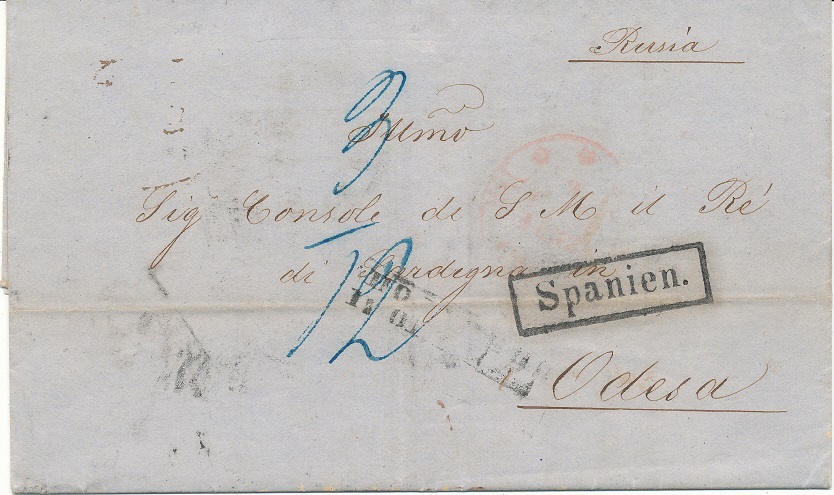 Rusia
3
Sig Console di S M il Ré
di Sardegna in
12
Spanien.
Odesa